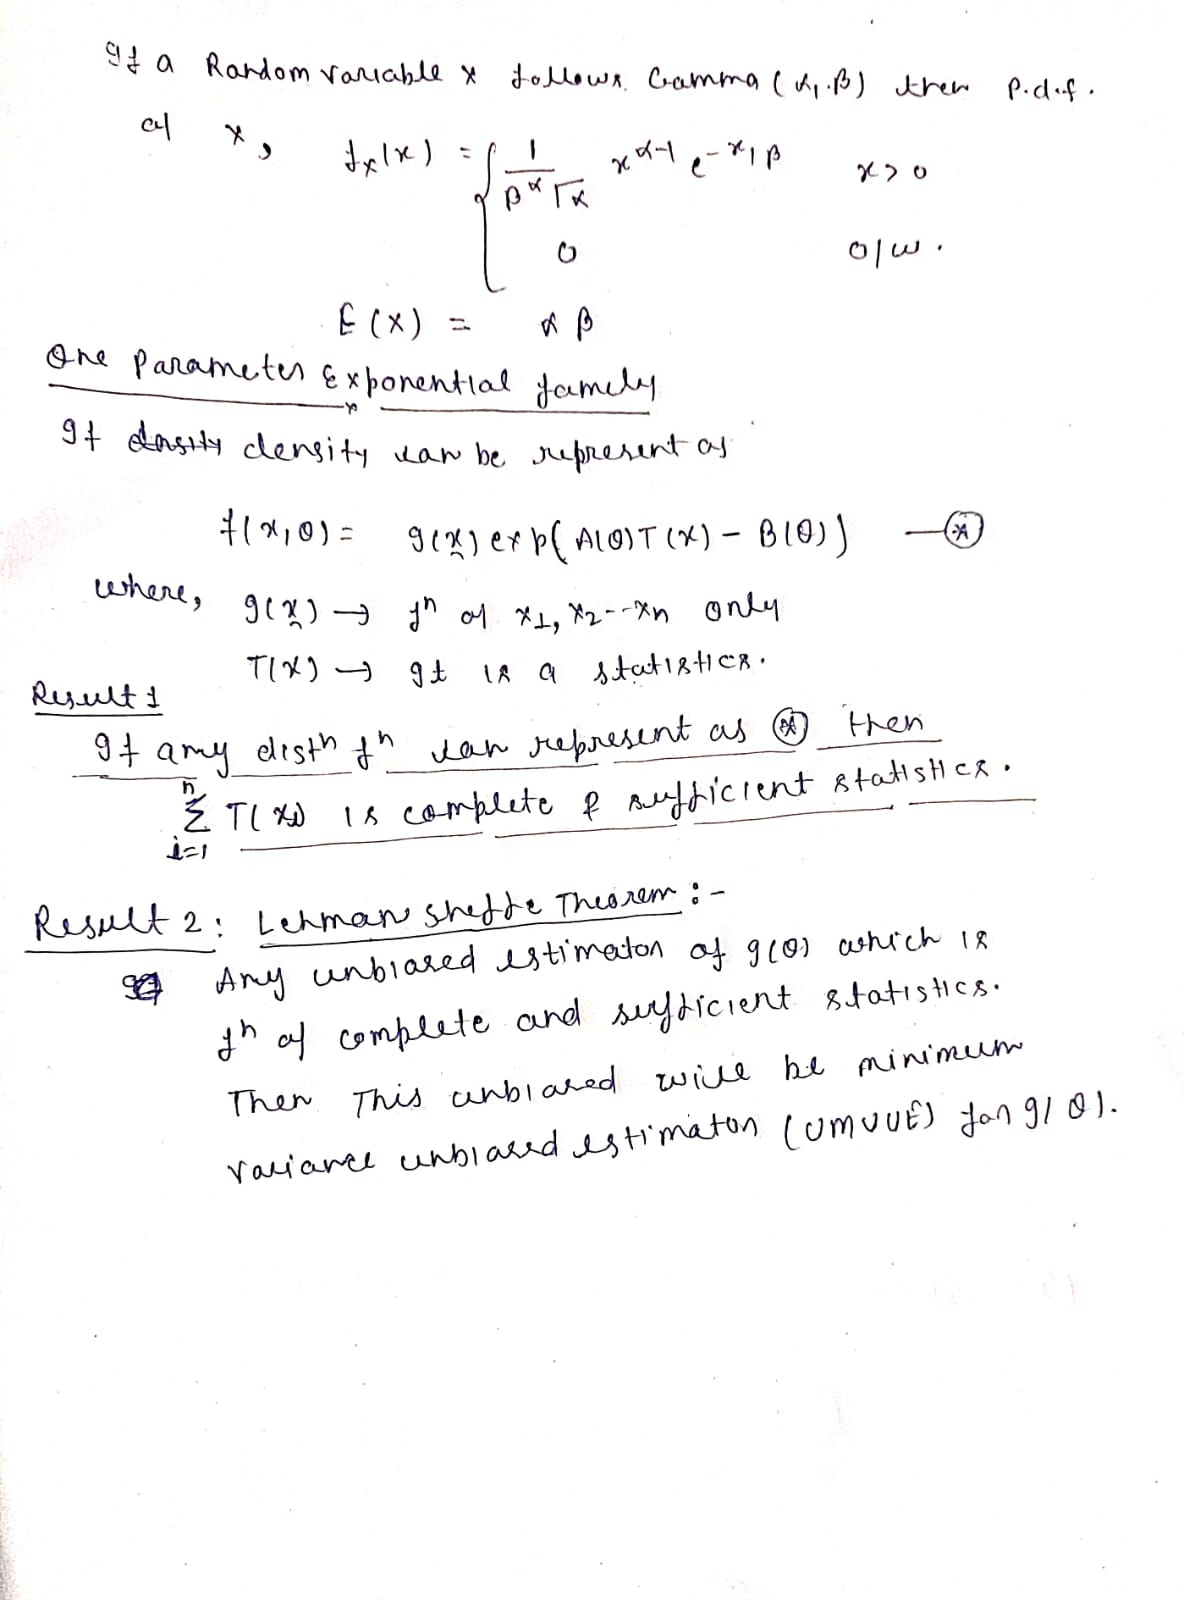 If a Random variable x follows Gamma (α, β) then P.d.f.
of x, fx(x) = { 1/(β^α Γα) x^(α-1) e^(-x/β) x>0
0 o/w.
E(X) = αβ
One Parameter Exponential family
If density can be represent as
f(x,θ) = g(x) exp{A(θ)T(x) - B(θ)} —(*)
where, g(x) → fn of x1, x2--xn only
T(x) → It is a statistics.
Result 1
If any distn fn can represent as (*) then
n∑i=1 T(xi) is complete & sufficient statistics.
Result 2: Lehman sheffe Theorem :-
Any unbiased estimaton of g(θ) which is
fn of complete and sufficient statistics.
Then This unbiased will be minimum
variance unbiased estimaton (UMVUE) for g(θ).